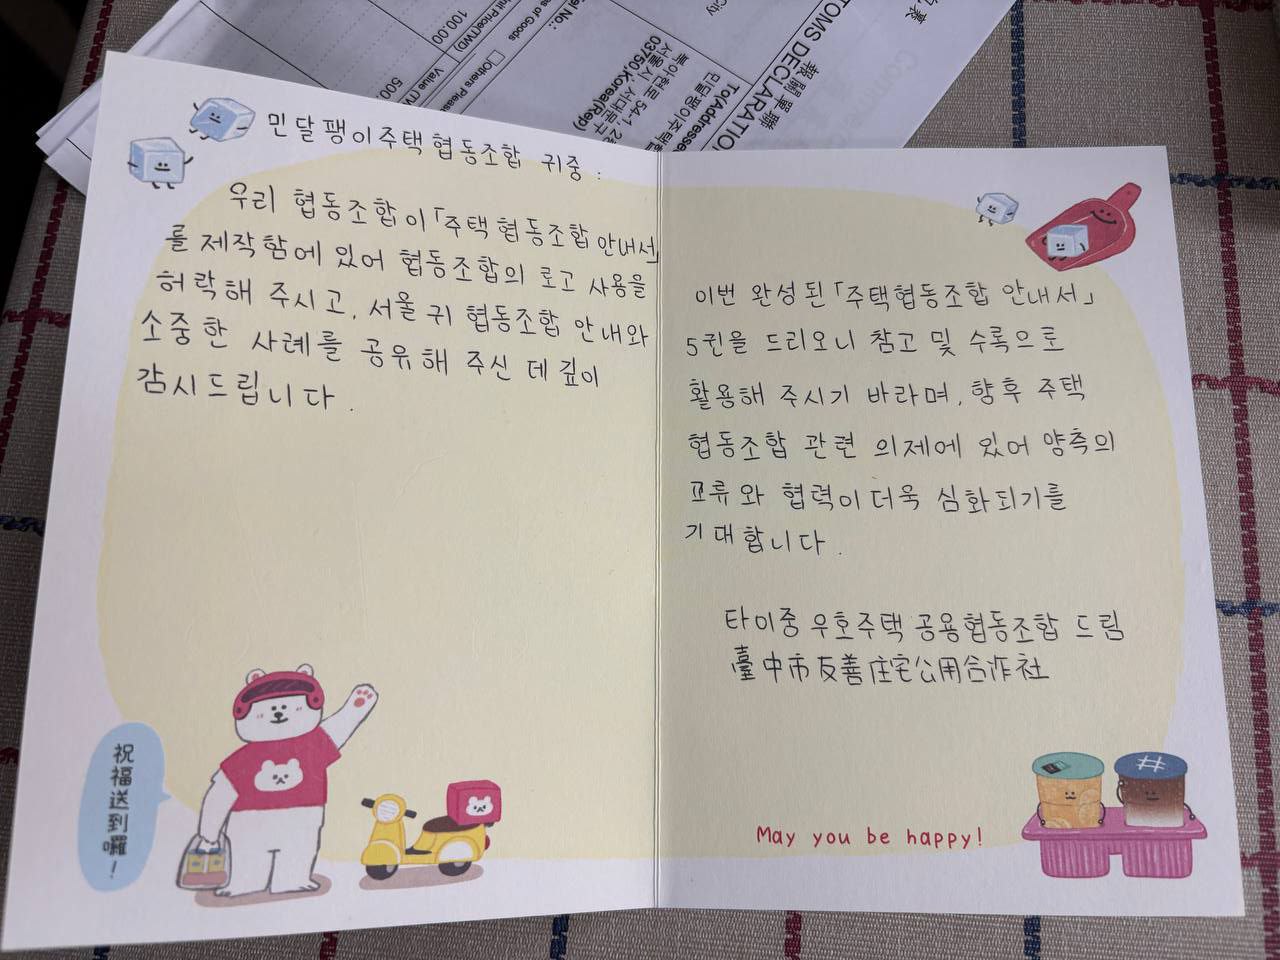 報關單聯
TOMS DECLARATIO
To(Addresse
민달팽이주택협
북아현로 54-1, 2
서울시 서대문구
03750,Korea(Rep)
el No.:
City
es of Goods
Others Pleas
nit Price(TWD)
Value (TV
100.00
500
민달팽이주택협동조합 귀중 :
우리 협동조합이「주택협동조합 안내서」
를 제작함에 있어 협동조합의 로고 사용을
허락해 주시고, 서울 귀 협동조합 안내와
소중한 사례를 공유해 주신 데 깊이
감시드립니다.
祝福送到囉！
이번 완성된「주택협동조합 안내서」
5퀸을 드리오니 참고 및 수록으로
활용해 주시기 바라며, 향후 주택
협동조합 관련 의제에 있어 양측의
교류와 협력이 더욱 심화되기를
기대합니다.
타이중 우호주택 공용협동조합 드림
臺中市友善住宅公用合作社
May you be happy!